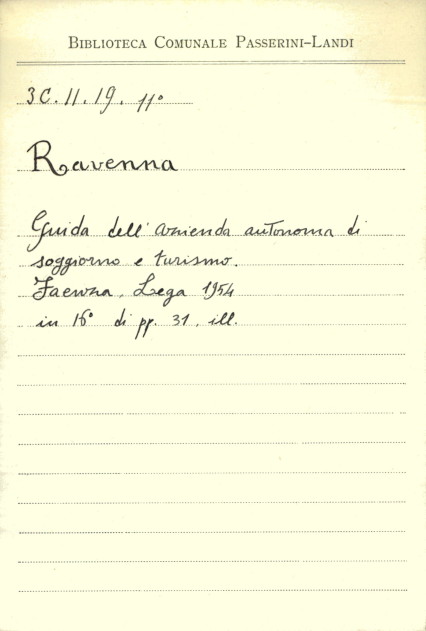 BIBLIOTECA COMUNALE PASSERINI-LANDI
3C. II. 19. 11°
Ravenna
Guida dell'azienda autonoma di
soggiorno e turismo.
Faenza, Lega 1954
in 16° di pp. 31, ill.